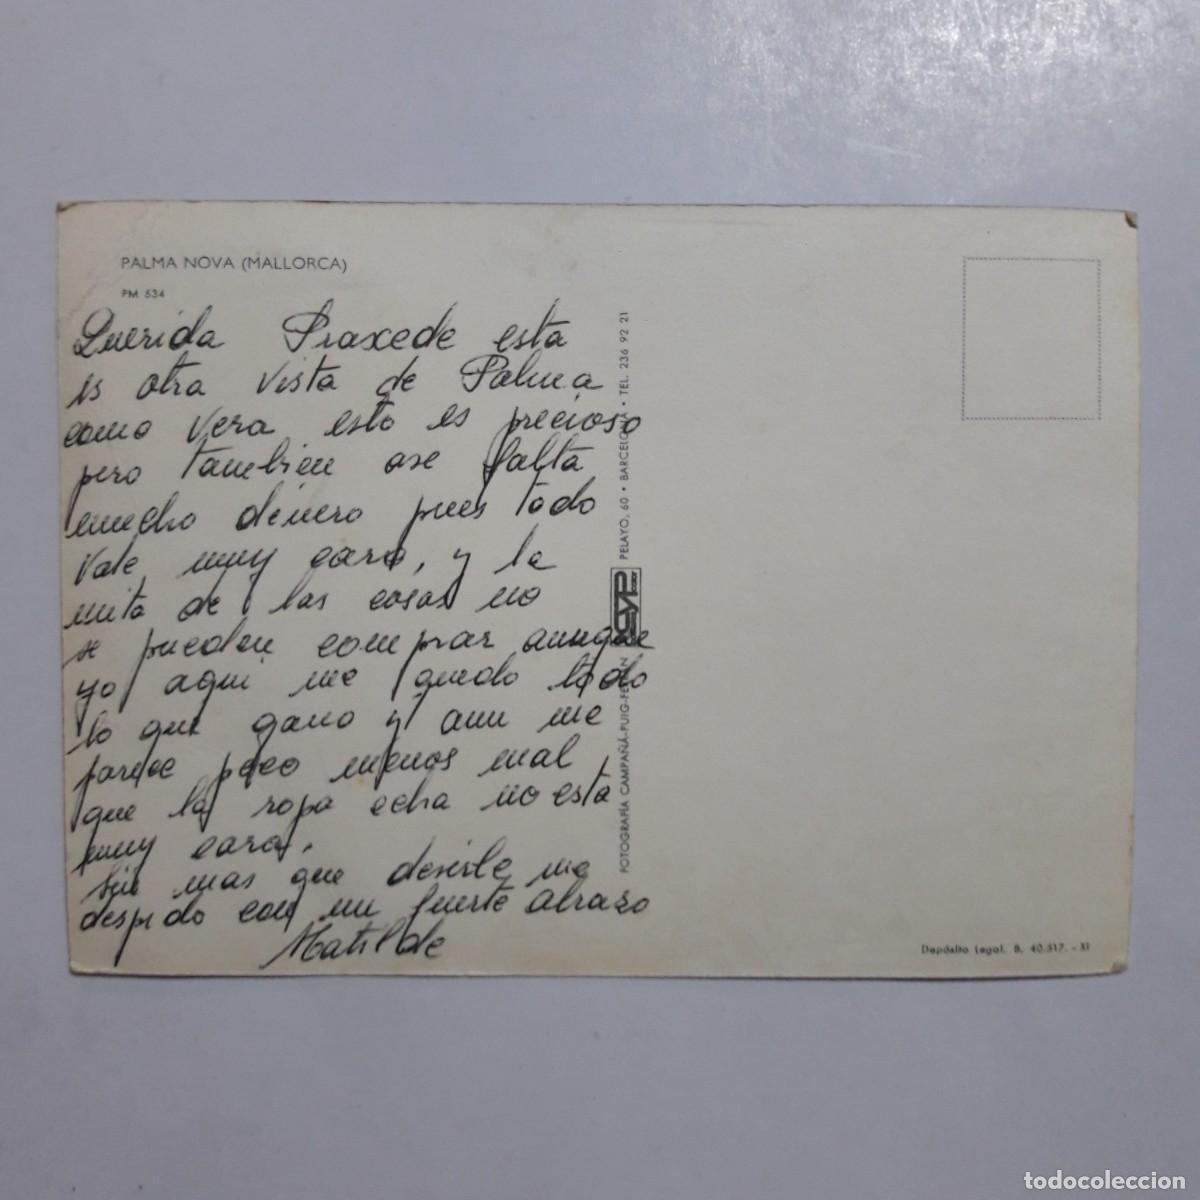 PALMA NOVA (MALLORCA)
PM 534
Querida Praxede esta
es otra vista de Palma
como vera esto es precioso
pero tambien ase falta
mucho dinero pues todo
Vale muy caro, y la
mita de las cosas no
se pueden comprar aunque
yo aqui me quedo todo
lo que gano y aun me
parece poco menos mal
que la ropa echa no esta
muy cara.
Sin mas que desirle me
despido con un fuerte abraso
Matilde
FOTOGRAFÍA CAMPAÑÁ-PUIG-FERRÁN
PELAYO, 60 • BARCELONA • TEL. 236 92 21
Depósito Legal. B. 40.517. - XI
todocoleccion